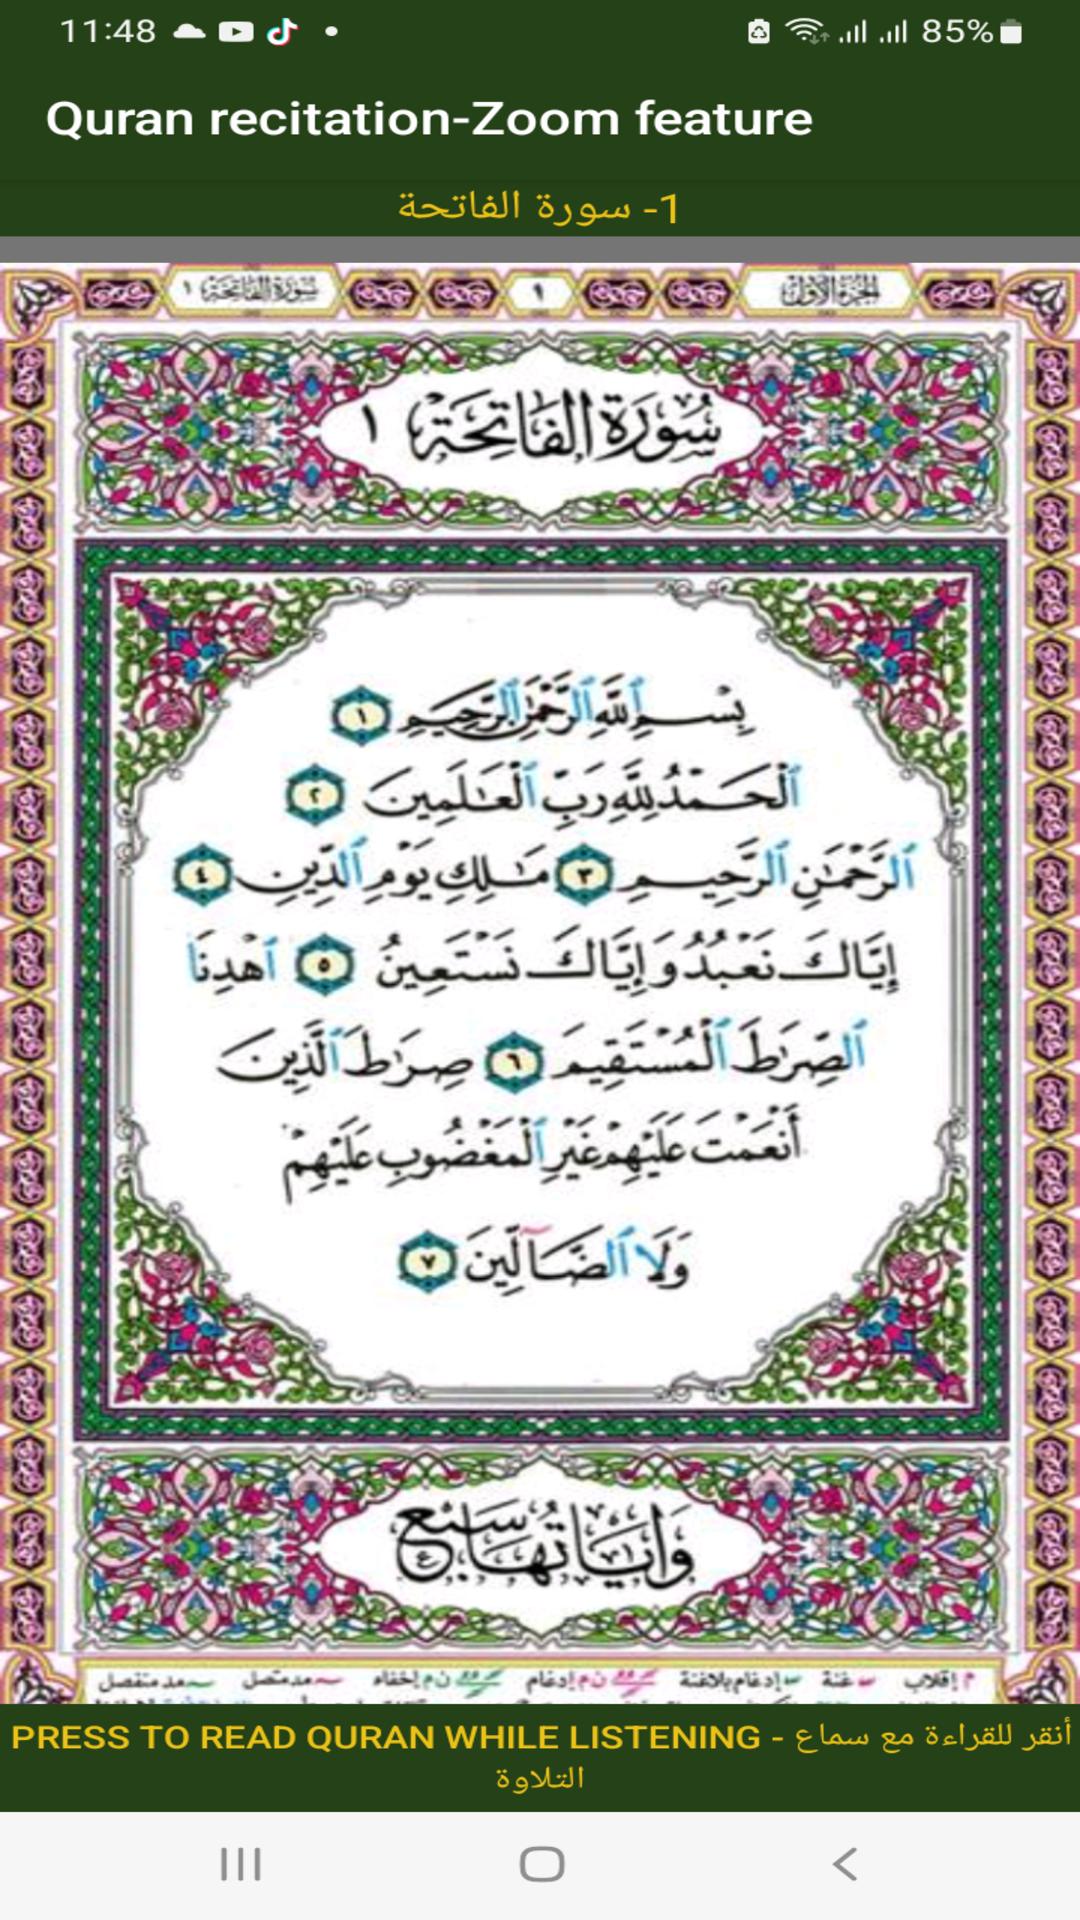 11:48
85%
Quran recitation-Zoom feature
1- سورة الفاتحة
سورة الفاتحة ١
٩
الجزء الأول
سُورَةُ الفَاتِحَةِ ١
بِسْمِ ٱللَّهِ ٱلرَّحْمَٰنِ ٱلرَّحِيمِ ١
ٱلْحَمْدُ لِلَّهِ رَبِّ ٱلْعَٰلَمِينَ ٢
ٱلرَّحْمَٰنِ ٱلرَّحِيمِ ٣ مَٰلِكِ يَوْمِ ٱلدِّينِ ٤
إِيَّاكَ نَعْبُدُ وَإِيَّاكَ نَسْتَعِينُ ٥ ٱهْدِنَا
ٱلصِّرَٰطَ ٱلْمُسْتَقِيمَ ٦ صِرَٰطَ ٱلَّذِينَ
أَنْعَمْتَ عَلَيْهِمْ غَيْرِ ٱلْمَغْضُوبِ عَلَيْهِمْ
وَلَا ٱلضَّآلِّينَ ٧
وَآيَاتُهَا سَبْعٌ
م إقلاب غنة إدغام بلاغنة ن م إدغام ن م إخفاء مد متصل مد منفصل
PRESS TO READ QURAN WHILE LISTENING - أنقر للقراءة مع سماع
التلاوة